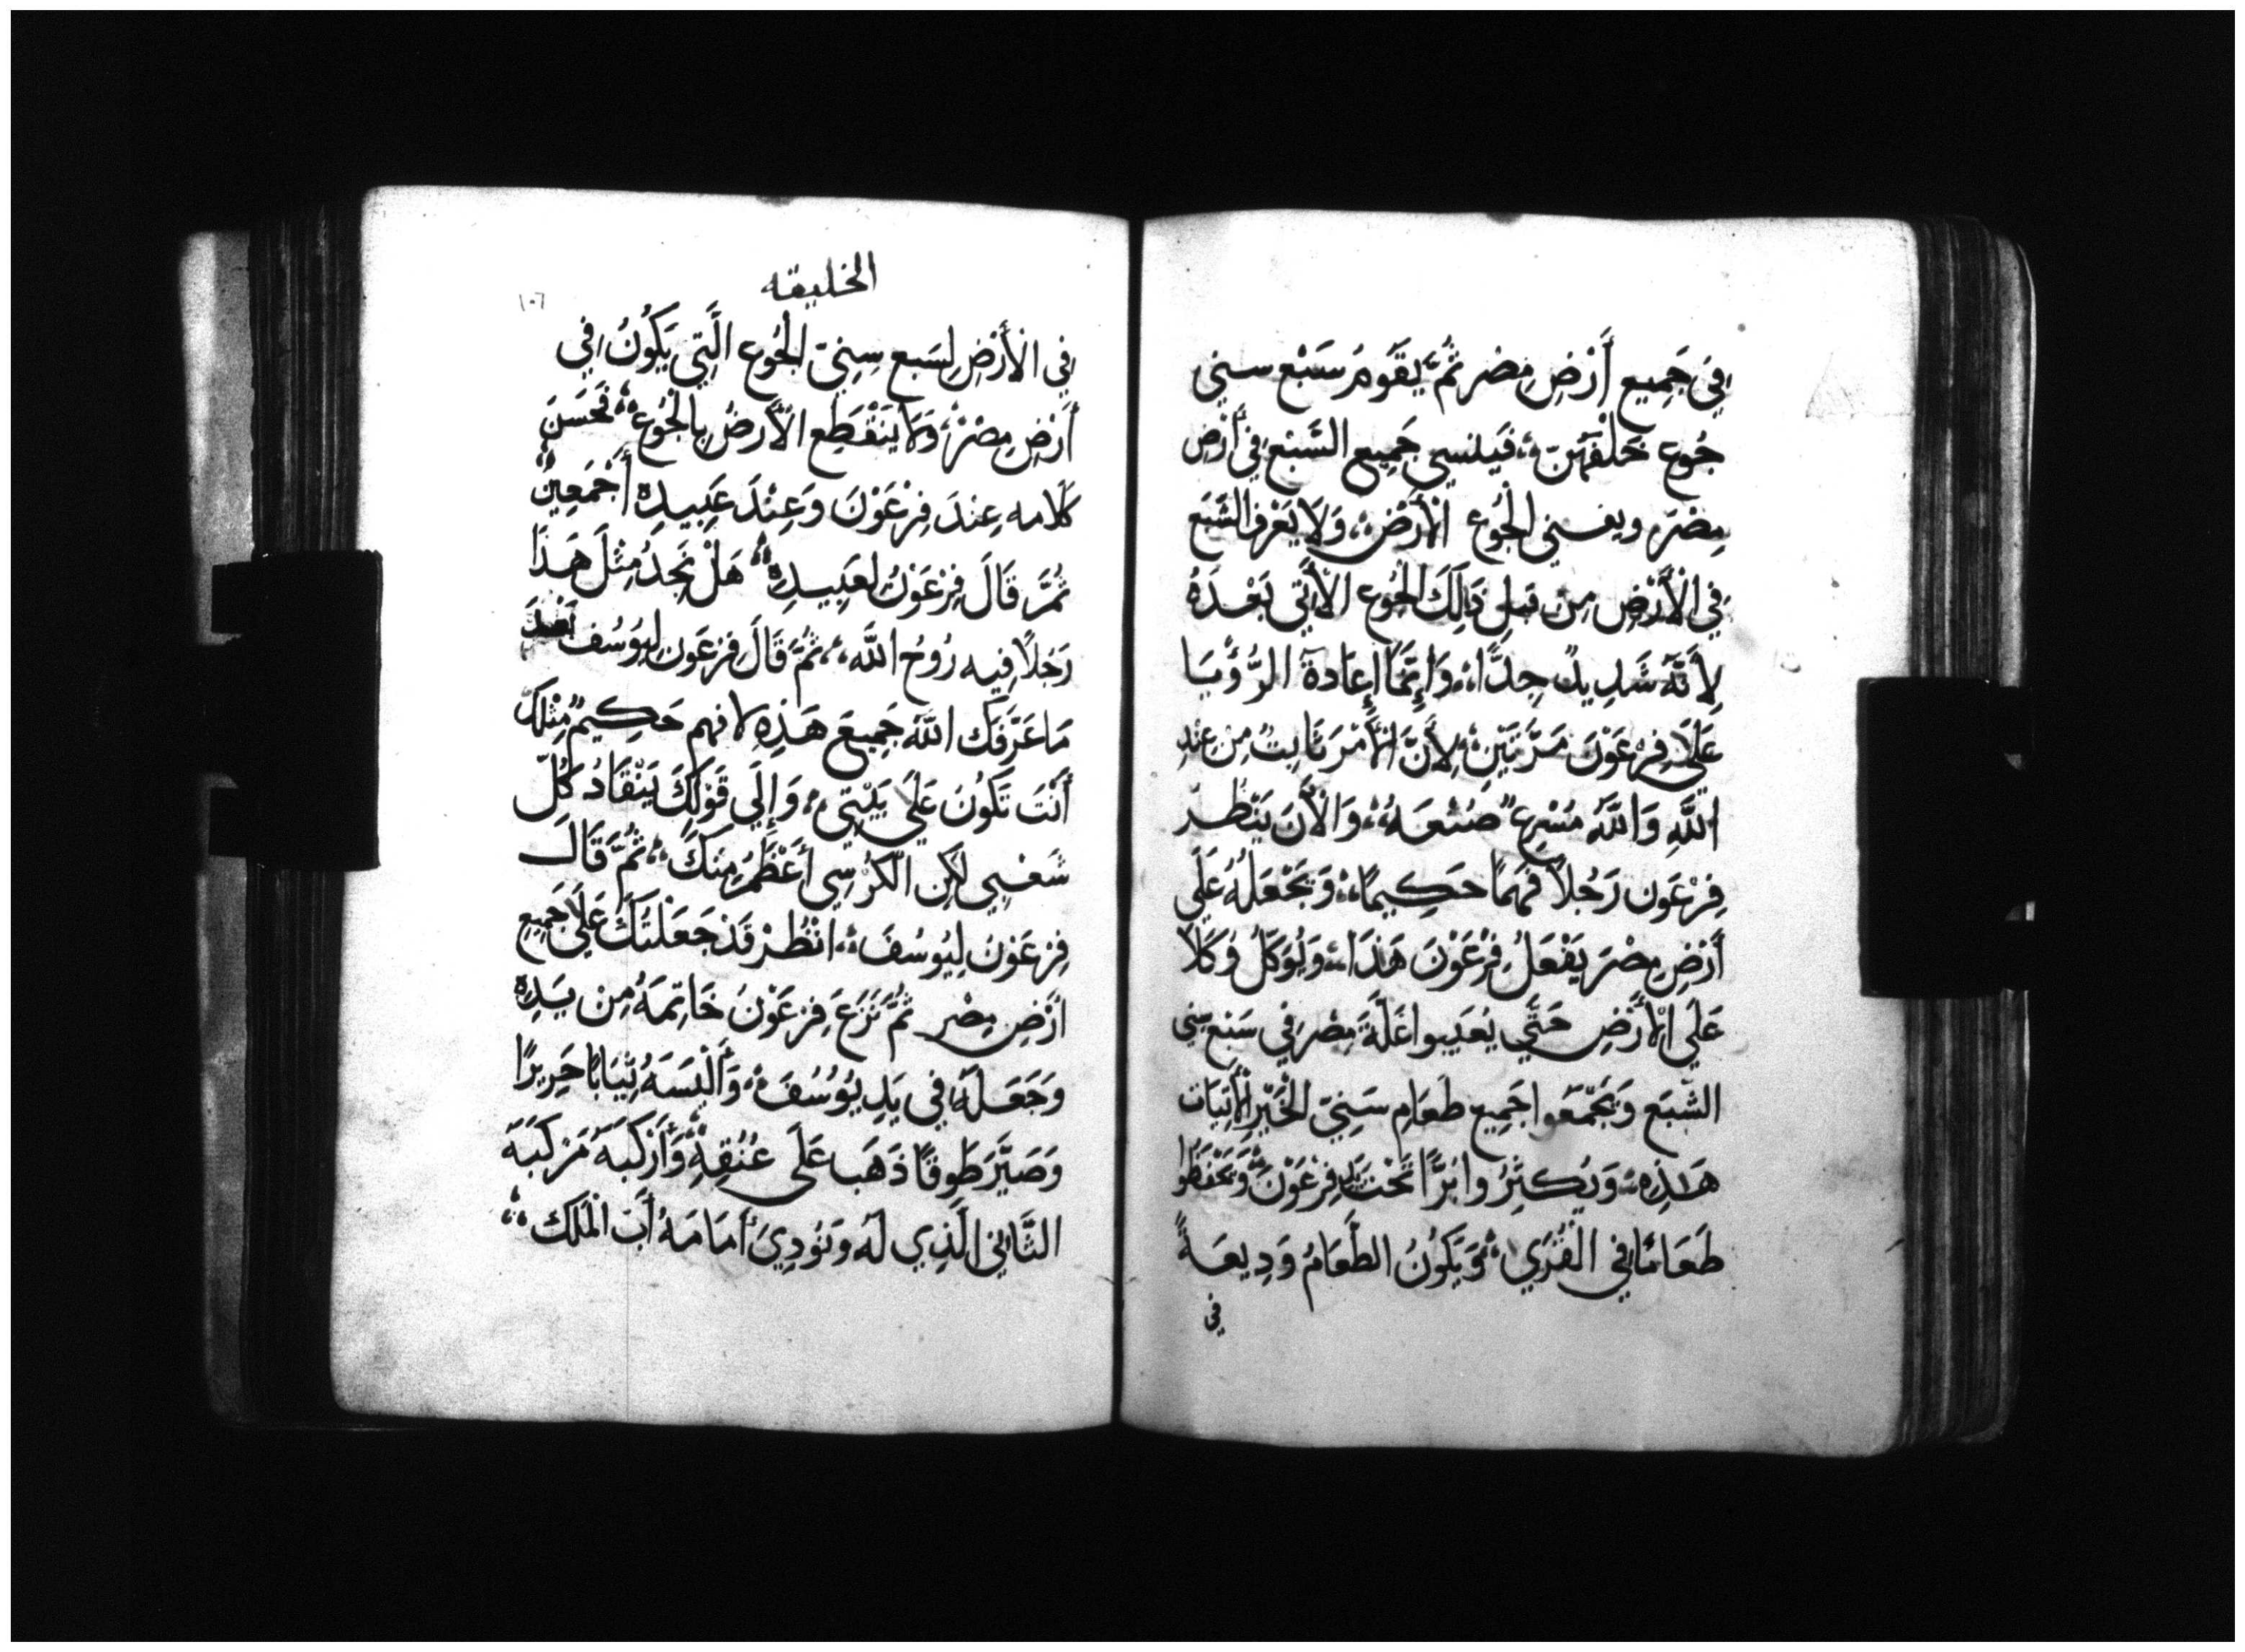 فِي جَمِيعِ أَرْضِ مِصْر ثُمَّ يَقُومُ سَبْعِ سنِي
جُوع خَلْفَهُنّ، فَيَنسي جَمِيع الشَبْع فِي أَرْضِ
مِصْرَ ويفني الجُوع الأَرْضْ، وَلَا يَعْرِف الشَبَع
فِي الْأَرْضِ مِنْ قبلِ ذَالِكَ الجُوع الْأَتِي بَعْدَهُ
لِأَنَّهُ شَدِيدٌ جِدًّا، وَإِنَّمَا إِعَادةَ الرُّؤْيَا
عَلَي فِرْعَوْنَ مَرَّتَيْنِ، لِأَنَّ الْأَمْرَ ثَابِتٌ مِن عِنْدِ
اللَّهِ وَاللَّهُ مُسْرِعٌ صُنْعَهُ، وَالْأَنَ يَنْظُرْ
فِرْعَون رَجُلاً فَهِمًا حَكِيمًا، وَيَجْعَلُهُ عَلَي
أَرْضِ مِصْرَ يَفْعَلُ فِرْعَوْنَ هَذَا، وَيُوَكِّلُ وُكَلَا
عَلَي الْأَرْضِ حَتَّي يُعَبِيوا غَلَّةَ مِصْرَ فِي سَبْع سِنِي
الشَّبَع وَيَجْمَعُوا جَمِيع طَعَامِ سَنِيّ الْخَيْرِ الْأَتِيَات
هَذِهِ، وَيُكثِرُوا بُرًّا تَحْتَ يَدِ فِرْعَوْنَ، وَيَحْفَظُوا
طَعَامًا فِي القُرَي، وَيَكُونُ الطَّعَامُ وَدِيعَةً
فِي
الخليقه
١٠٦
فِي الْأَرْضِ لِسَبع سِنِيّ الجُوع الَّتِي يَكُونُ فِي
أَرْضِ مِصْرْ، وَلَا يَنْقَطِع الْأَرضُ بِالْجُوع، فَحَسَنَ
كَلَامه عِندَ فِرْعَوْنَ وَعِنْدَ عَبِيدِهِ أَجْمَعِينْ
ثُمَّ قَالَ فِرْعَوْنُ لعَبِيدِهِ، هَلْ نَجِدُ مِثْلَ هَذَا
رَجُلاً فِيه رُوُحُ اللَّه، ثُمَّ قَالَ فِرْعَون لِيوُسُف
مَا عَرَّفَكَ اللَّهُ جَمِيعَ هَذِهِ لا فهم حَكِيمٌ مِثْلَكَ
أَنْتَ تَكُونُ عَلَي بَيْتِي، وَإِلَي قَوْلِكَ يَنْقَادُ كُلّ
شَعْبِي لَكِن الكُرْسِي أَعْظَمُ مِنكَ، ثُمَّ قَالَ
فِرعَوْنَ لِيُوسُفَ، انْظُرْ قَدْ جَعَلْتُكَ عَلَي جَمِيعِ
ارْضِ مِصْرِ ثُمَّ نَزَعَ فِرعَوْنَ خَاتِمَهُ مِنْ يَدِهِ
وَجَعَلَهُ فِي يَدِ يُوُسُفَ، وَأَلْبَسَهُ ثِيَابًا حَرِيرًا
وَصَيَّرَ طَوقًا ذَهَب عَلَى عُنُقِهِ، وَأَرْكَبَهُ مَرْكَبَهَ
الثَّانِي الَّذِي لَهُ وَنُودِيَ أَمَامَهُ أَبَ الْمَلَكَ،